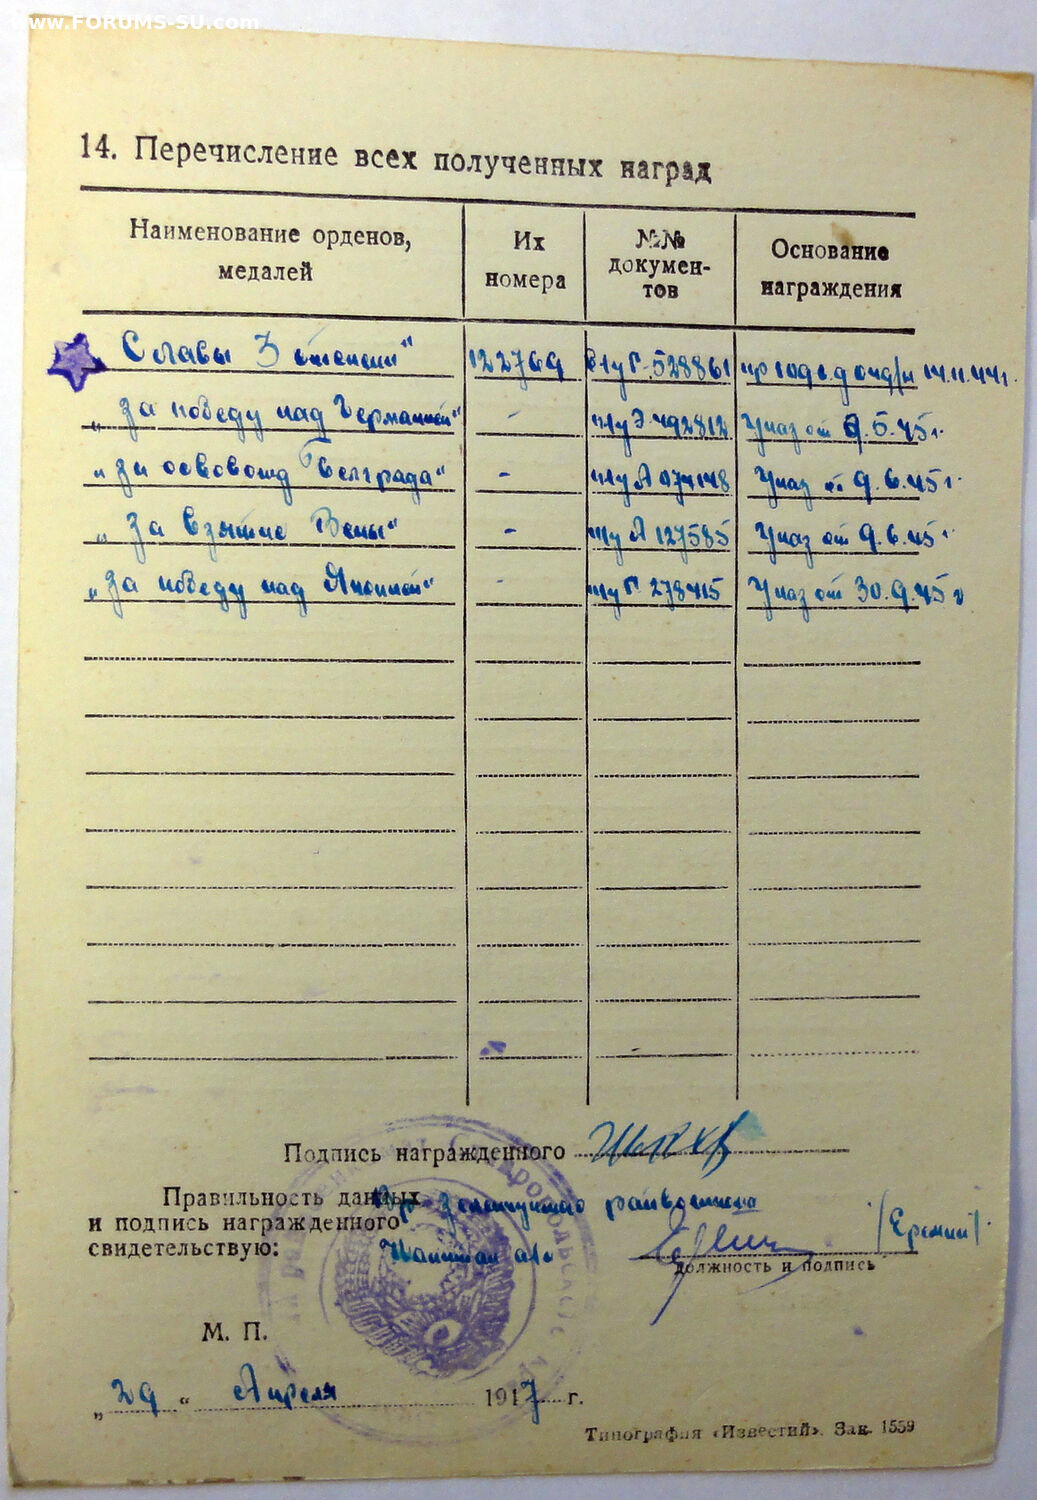 www.FORUMS-SU.com
14. Перечисление всех полученных наград
Наименование орденов, медалей
Их номера
№№ докумен-тов
Основание награждения
Славы 3 степени" 122769 528861 14.11.44г.
„За победу над Германией" - 492812 Указ от 9.5.45г.
„За освобожд Белграда" - А 074148 Указ от 9.6.45г.
„За взятие Вены" - А 127585 Указ от 9.6.45г.
„За победу над Японией" - 278415 Указ от 30.9.45г
Подпись награжденного
Правильность данных
и подпись награжденного
свидетельствую:
райвоенкома
Капитан а/с
/Еремин/
должность и подпись
М. П.
„29" Апреля 1947 г.
Типография «Известий». Зак. 1559